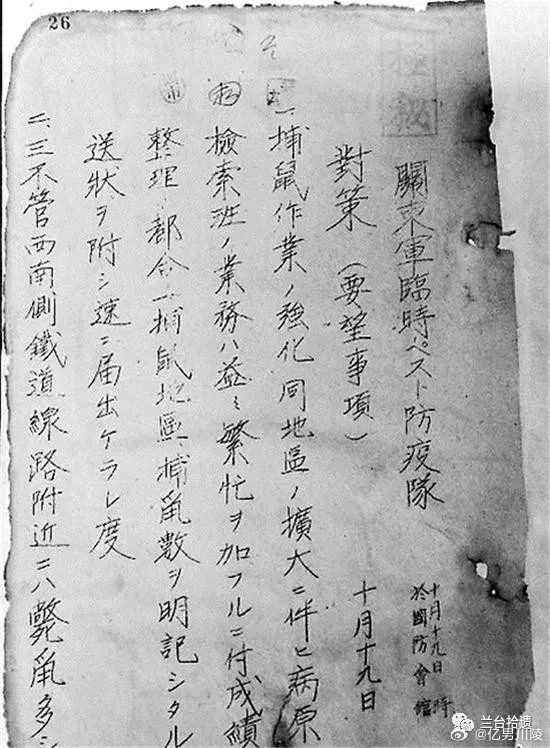 26
極秘
關東軍臨時ペスト防疫隊
十月十九日 時
於國防會館
對策(要望事項)
十月十九日
一、捕鼠作業ノ強化同地區ノ擴大ニ伴ヒ病原
檢索班ノ業務ハ益々繁忙ヲ加フルニ付成績
整理ノ都合上捕鼠地區捕鼠数ヲ明記シタル
送狀ヲ附シ速ニ届出ケラレ度
二、三不管西南側鐵道線路附近ニハ斃鼠多シ
兰台拾遗
@亿男川陵